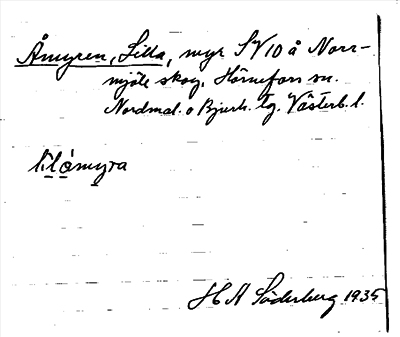 Åmyren, Lilla, myr SV 10 å Norr-
mjöle skog, Hörnefors sn.
Nordmal. o Bjurh. tg. Västerb. l.
lìlåmyra
H A Söderberg 1935